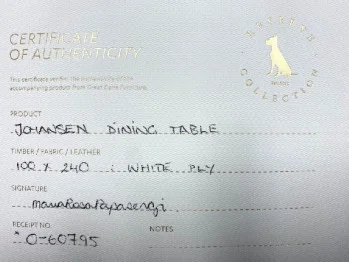 CERTIFICATE
OF AUTHENTICITY
This certificate verifies the authenticity of the
accompanying product from Great Dane Furniture.
COLLECTION
PRODUCT
JOHANSEN DINING TABLE
TIMBER / FABRIC / LEATHER
100 X 240 : WHITE PLY
SIGNATURE
RECEIPT NO.
O-60795
NOTES